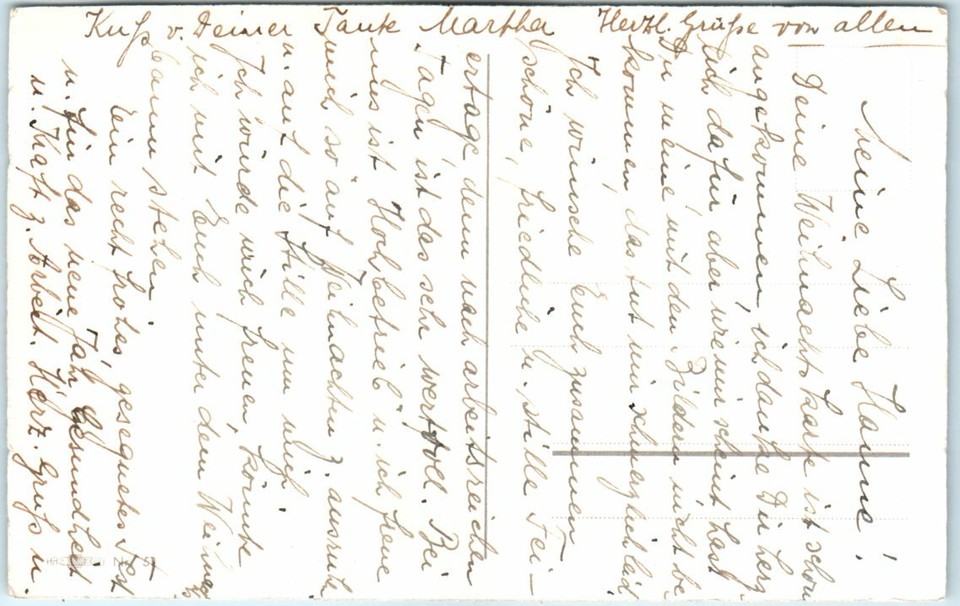 Meine Liebe Hanne!
Deine Weihnachtskarte ist schon
angekommen, ich danke Dir herz
lich dafür aber wie mir scheint hast
Du meine mit den Bildern nicht be
kommen, das tut mir schmerzlich leid
Ich wünsche Euch zusammen
schöne, friedliche u. stille Fei-
ertage denn nach arbeitsreichen
Tagen ist das sehr wertvoll. Bei
uns ist Hochbetrieb u. ich freue
mich so auf Weihnachten z. ausruh.
u. auf die Stille um mich
Ich würde mich freuen, könnte
ich mit Euch unter dem Weihnachts
baum stehen.
Ein recht frohes gesegnetes Fest
u. für das neue Jahr Gesundheit
u. Kraft z. Arbeit. Herz. Gruß u.
Kuß v. Deiner Tante Martha
Herzl. Grüße von allen